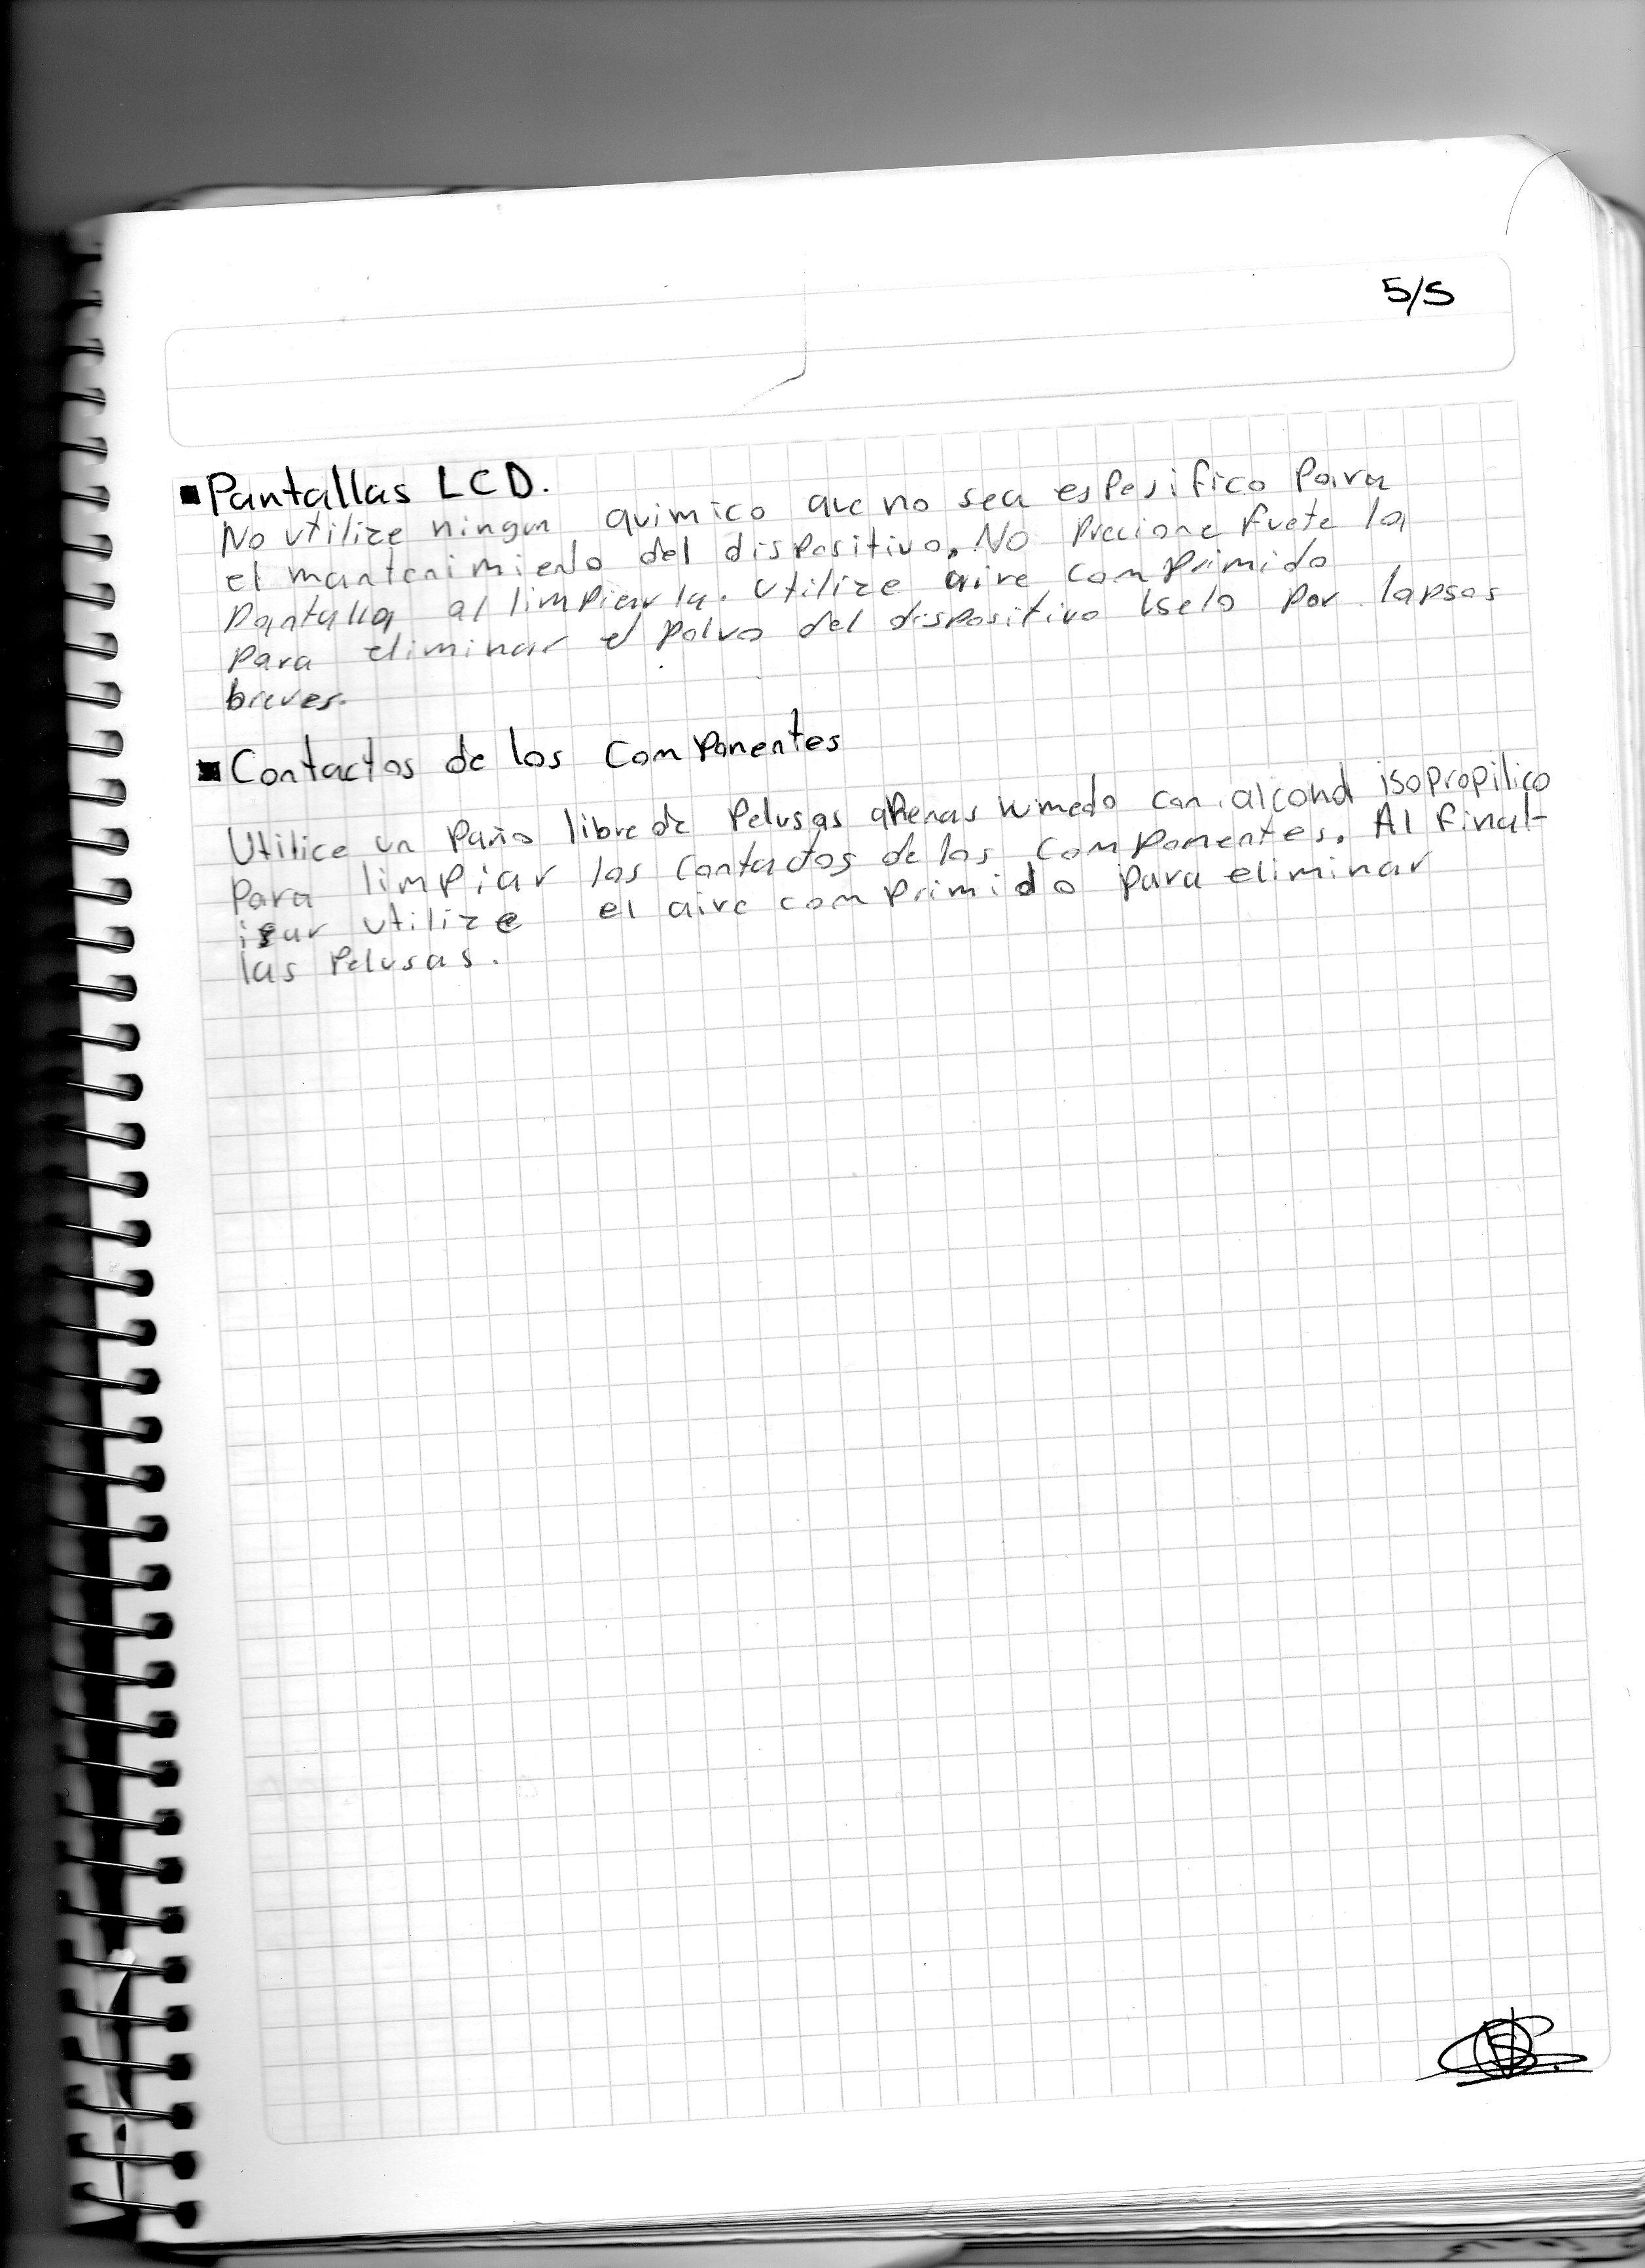 5/5
Pantallas LCD.
No utilize ningun quimico que no sea espesifico para
el mantenimiento del dispositivo. No precione fuete la
pantalla al limpiarla. Utilize aire comprimido
para eliminar el polvo del dispositivo úselo por lapsos
breves.
Contactos de los componentes
Utilice un paño libre de pelusas apenas humedo con alcohol isopropilico
para limpiar los contactos de los componentes. Al final-
izar utilize el aire comprimido para eliminar
las pelusas.